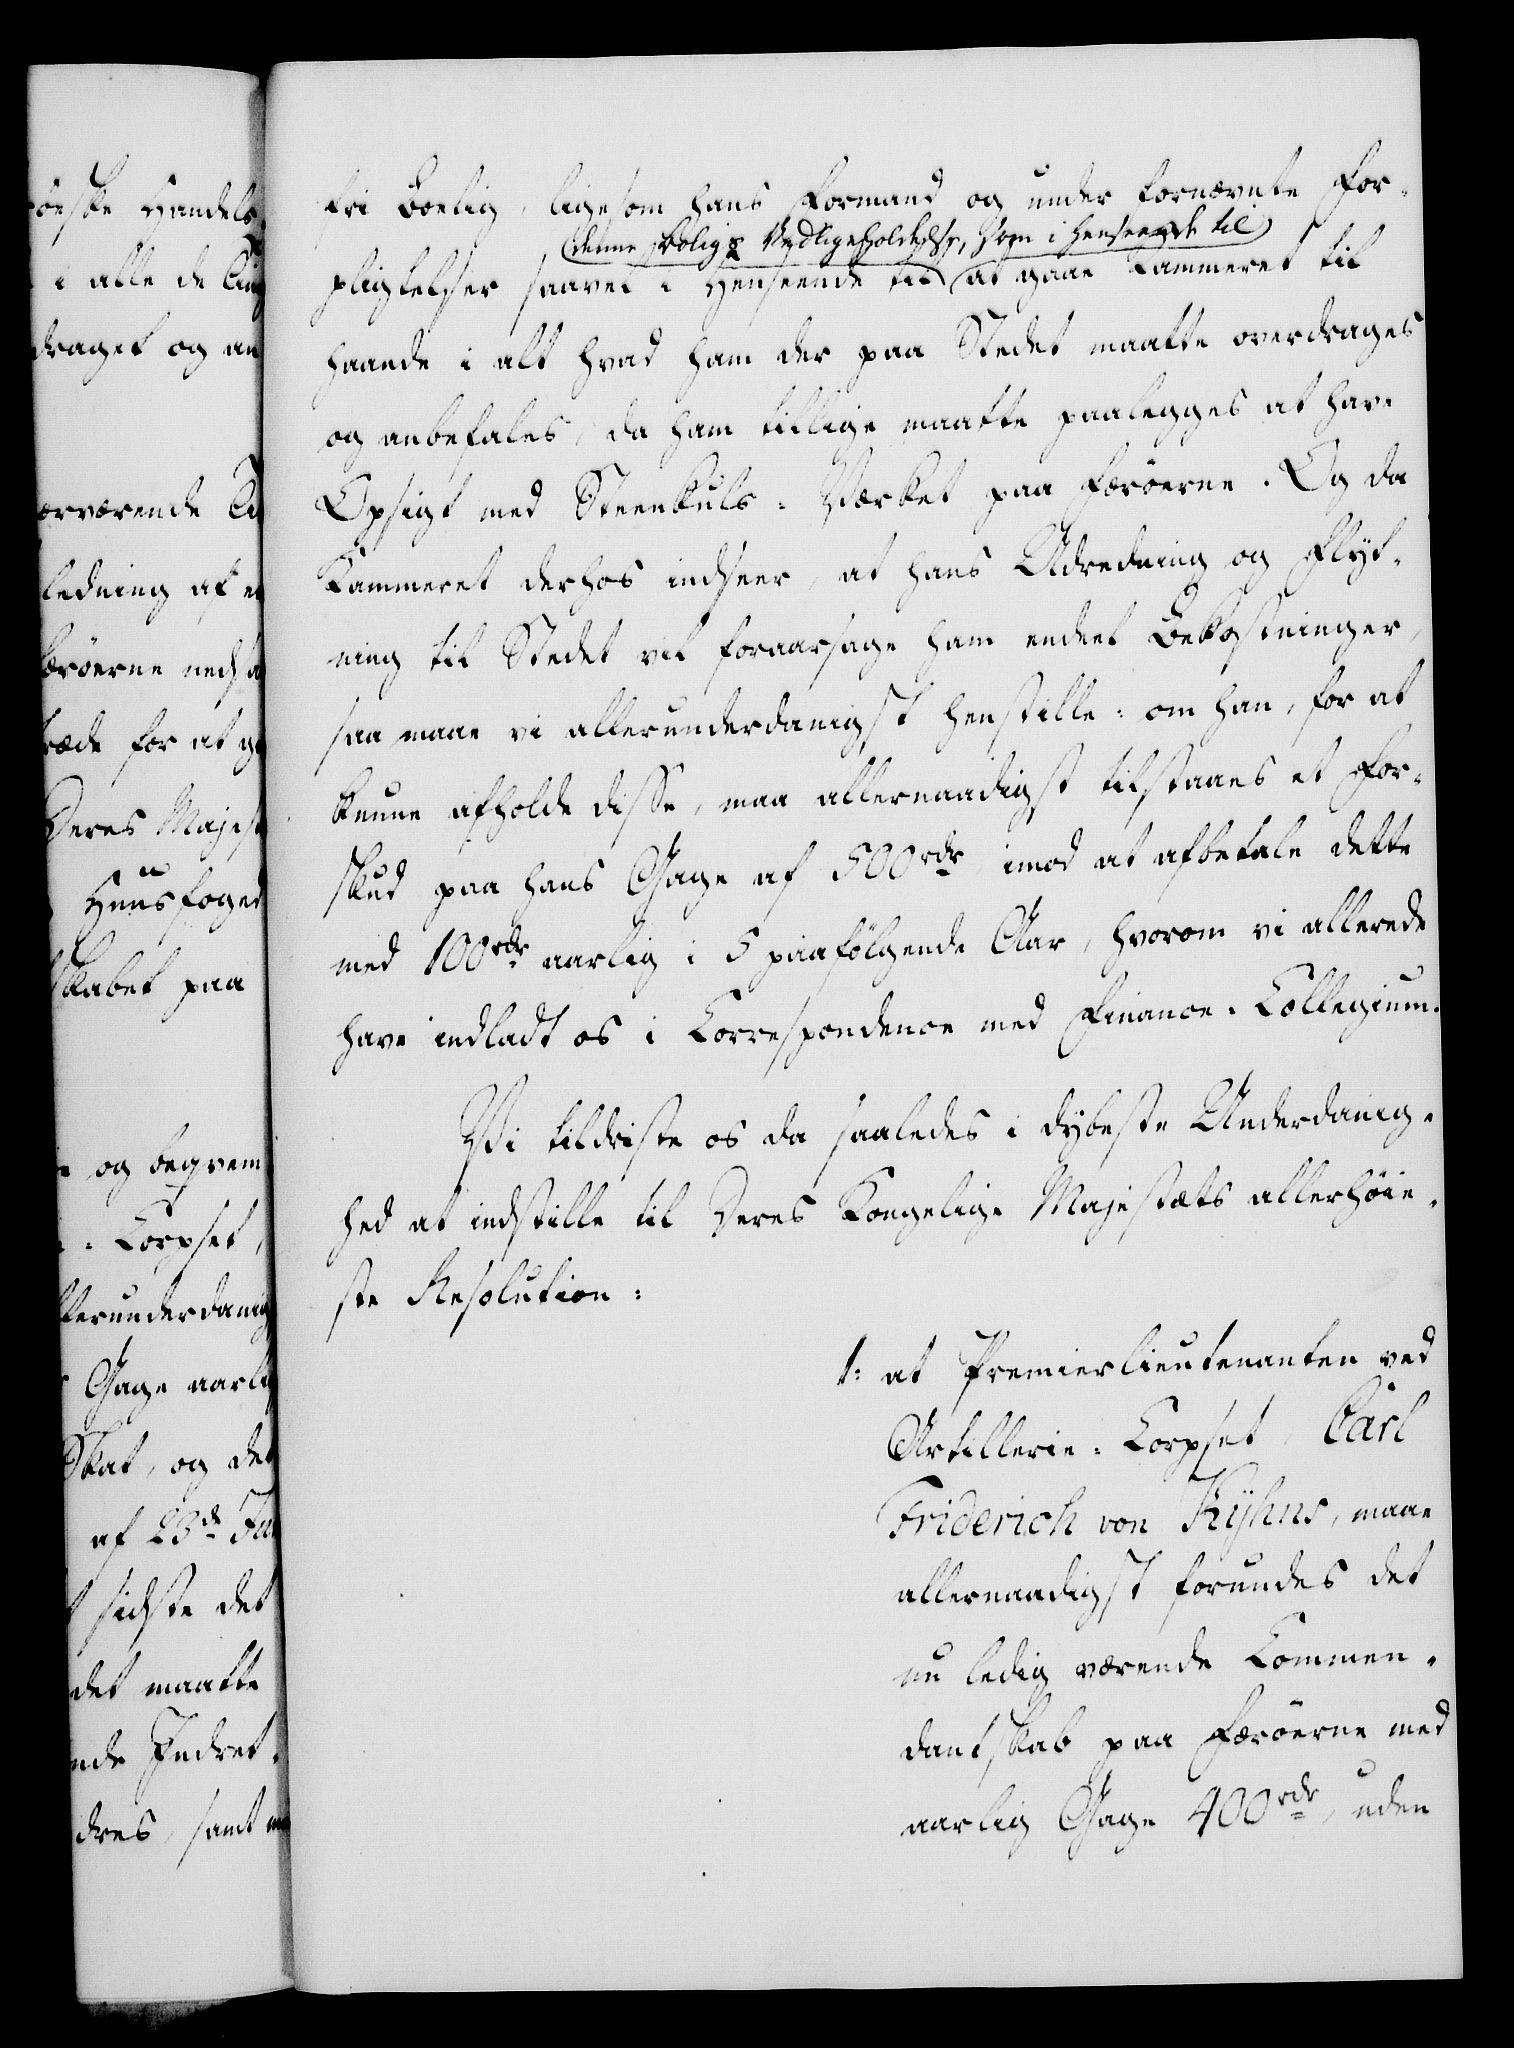 öeske Handels
i alle de Ting
draget og an
ørværende
ledning af
Færöerne nedsa
træde for at
Deres Majest
Huusfoged
skabet paa
og beqvem
Corpset,
allerunderdanig
Gage aarlig
Skat, og det
af 23de
sidste det
det maatte
nde Indret-
dres, samt
fri Boelig, ligesom hans Formand og under fornævnte For-
denne Boligs Vedligeholdelse, som i Henseende til
pligtelser saavel i Henseende til at gaae Kammeret til
Haande i alt hvad ham der paa Stedet maatte overdrages
og anbefales, da ham tillige maatte paalegges at have
Opsigt med Steenkuls-Værket paa Færöerne. Og da
Kammeret derhos indseer, at hans Udredning og Flyt-
ning til Stedet vil foraarsage ham endeel Bekostninger,
saa maae vi allerunderdanigst henstille: om han, for at
kunne afholde disse, maa allernaadigst tilstaaes et For-
skud paa hans Gage af 500 rdr imod at afbetale dette
med 100 rdr aarlig i 5 paafölgende Aar, hvorom vi allerede
have indladt os i Correspondence med Finance-Collegium.
Vi tildriste os da saaledes i dybeste Underdanig-
hed at indstille til Deres Kongelige Majestæts allerhöie-
ste Resolution:
1: at Premierlieutenanten ved
Artillerie-Corpset, Carl
Friderich von Kyhns, maae
allernaadigst forundes det
nu ledig værende Commen-
dantskab paa Færöerne med
aarlig Gage 400 rdr, uden